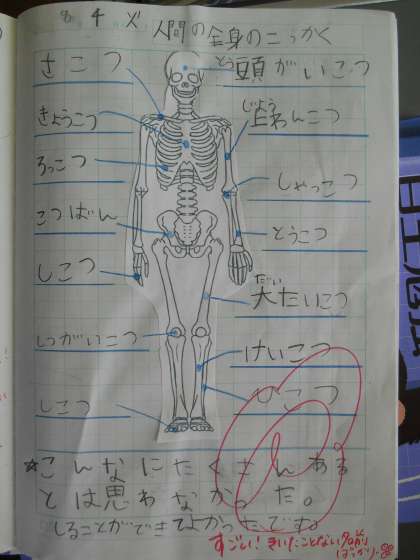 8 4 火 人間の全身のこっかく
さこつ
とう
頭がいこつ
きょうこつ
じょう
上わんこつ
ろっこつ
しゃっこつ
こつばん
とうこつ
しこつ
だい
大たいこつ
しつがいこつ
けいこつ
ひこつ
しこつ
☆こんなにたくさんある
とは思わなかった。
しることができてよかったです。
すごい!きいたことない名前
ばっかり